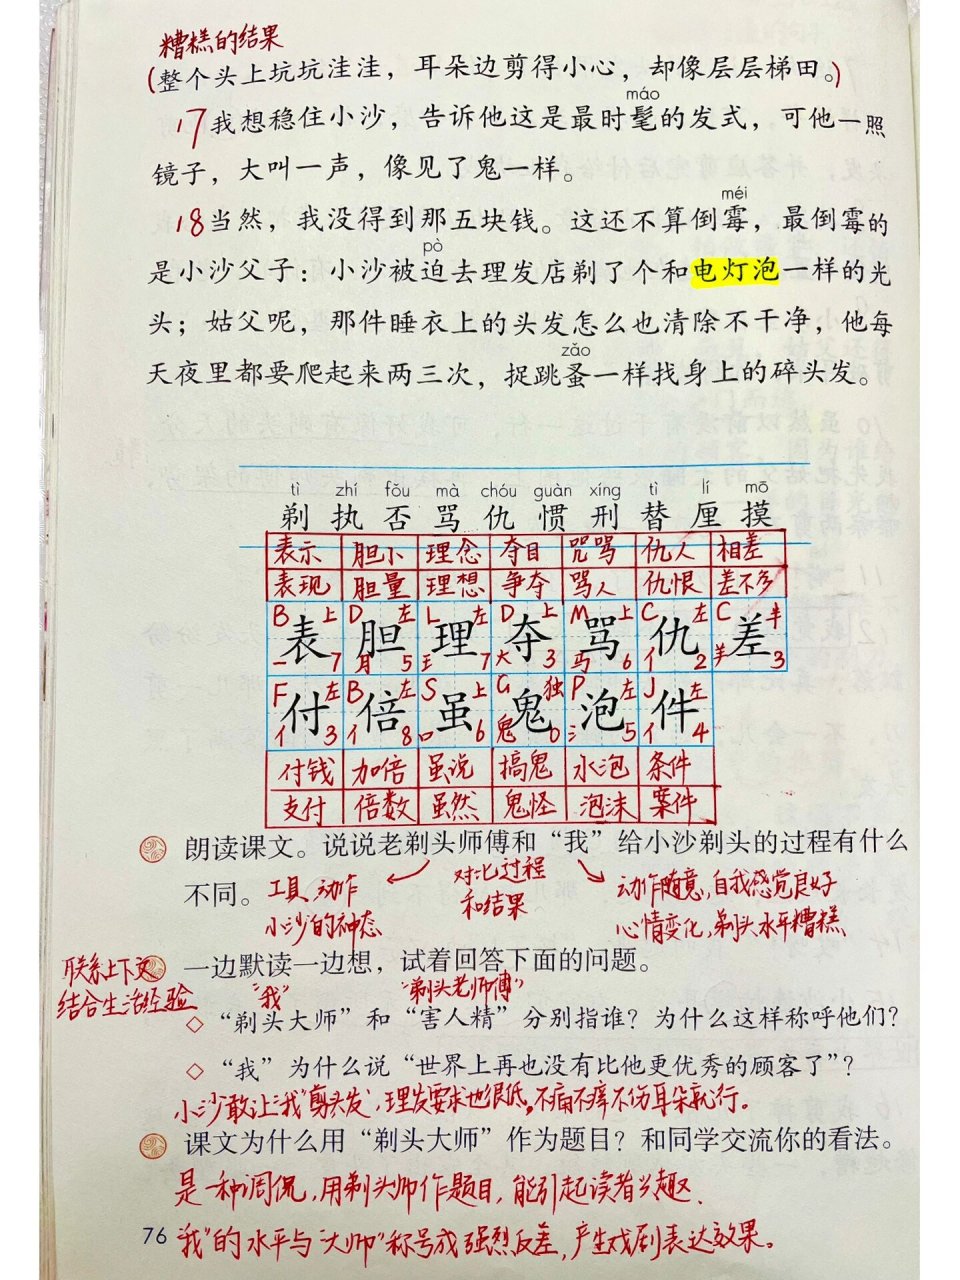 糟糕的结果
(整个头上坑坑洼洼，耳朵边剪得小心，却像层层梯田。)
máo
17我想稳住小沙，告诉他这是最时髦的发式，可他一照
镜子，大叫一声，像见了鬼一样。
méi
18当然，我没得到那五块钱。这还不算倒霉，最倒霉的
pò
是小沙父子：小沙被迫去理发店剃了个和电灯泡一样的光
头；姑父呢，那件睡衣上的头发怎么也清除不干净，他每
zǎo
天夜里都要爬起来两三次，捉跳蚤一样找身上的碎头发。
tì zhí fǒu mà chóu guàn xíng tì lí mō
剃 执 否 骂 仇 惯 刑 替 厘 摸
表示 胆小 理念 夺目 咒骂 仇人 相差
表现 胆量 理想 争夺 骂人 仇恨 差不多
B 上 D 左 L 左 D 上 M 上 C 左 C 半
表 胆 理 夺 骂 仇 差
一 7 月 5 王 7 大 3 马 6 亻 2 羊 3
F 左 B 左 S 上 G 独 P 左 J 左
付 倍 虽 鬼 泡 件
亻 3 亻 8 口 6 鬼 0 氵 5 亻 4
付钱 加倍 虽说 搞鬼 水泡 条件
支付 倍数 虽然 鬼怪 泡沫 案件
朗读课文。说说老剃头师傅和“我”给小沙剃头的过程有什么
不同。
工具、动作
小沙的神态
对比过程
和结果
动作随意，自我感觉良好
心情变化，剃头水平糟糕
联系上下文
结合生活经验
一边默读一边想，试着回答下面的问题。
“我” “剃头老师傅”
◇ “剃头大师”和“害人精”分别指谁？为什么这样称呼他们？
◇ “我”为什么说“世界上再也没有比他更优秀的顾客了”？
小沙敢让“我”剪头发，理发要求也很低。不痛不痒不伤耳朵就行。
课文为什么用“剃头大师”作为题目？和同学交流你的看法。
是一种调侃，用剃头大师作题目，能引起读者兴趣、
76
“我”的水平与“大师”称号成强烈反差，产生戏剧表达效果。